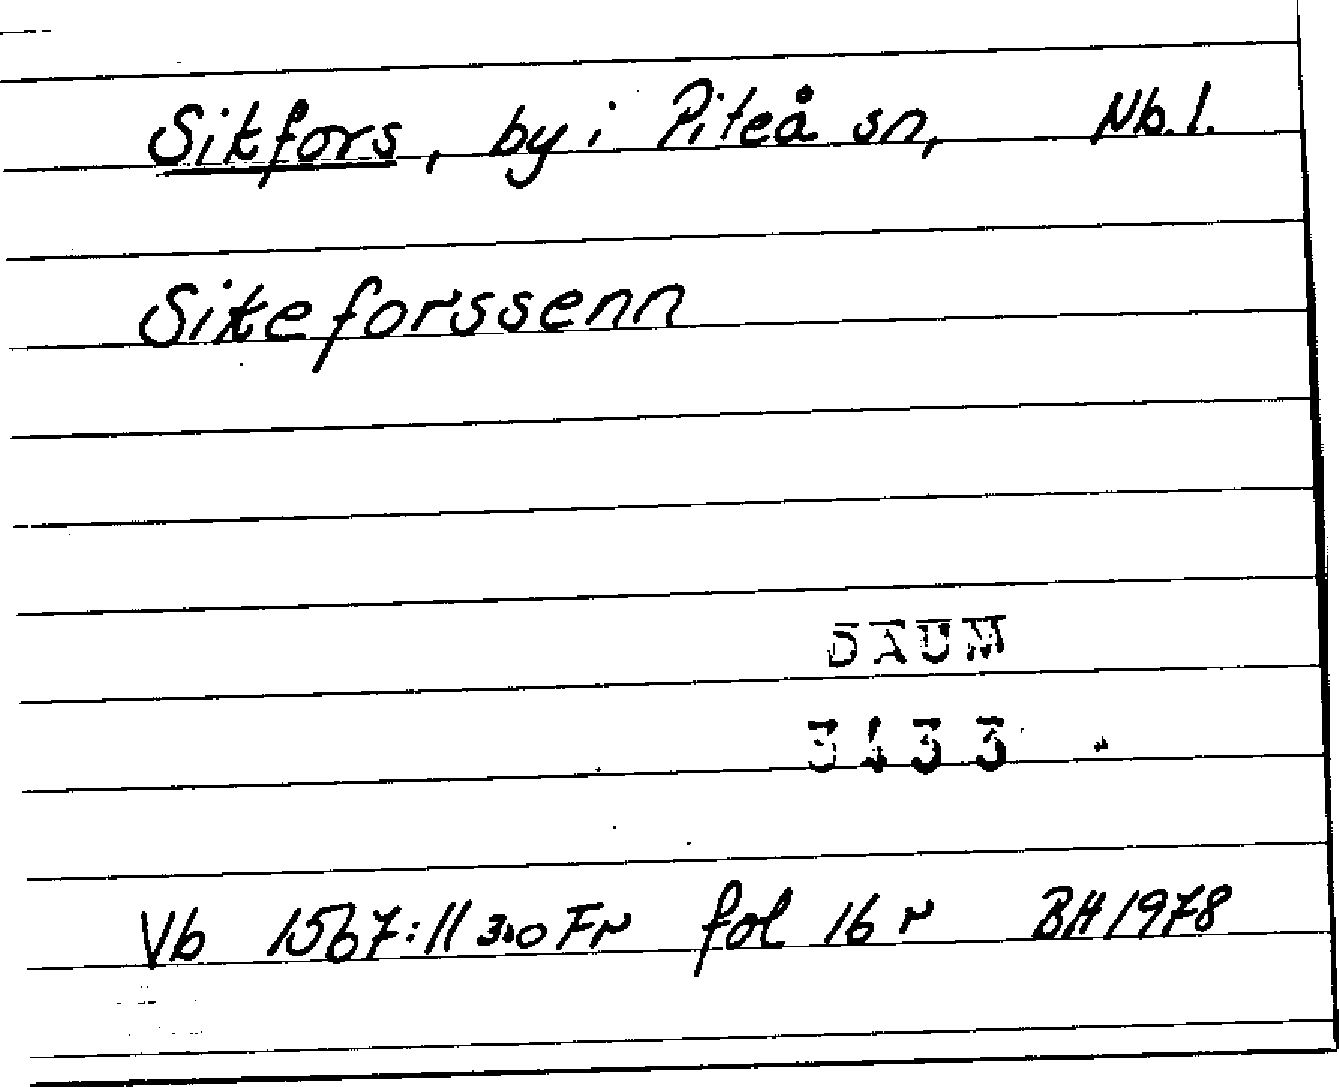 Sikfors, by i Piteå sn, Nb.l.
Sikeforssenn
DAUM
3433
Vb 1567:11 3.0 Fr fol 16 r BH 1978